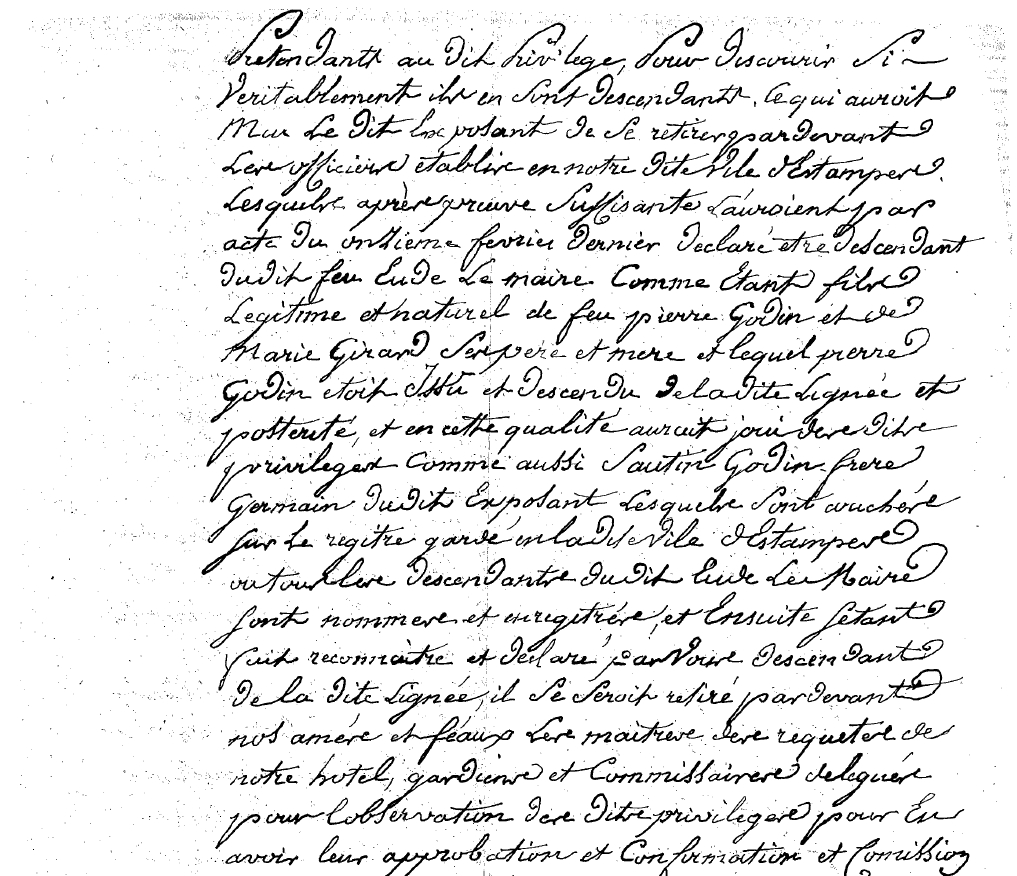 Pretendants au dit Privilege, Pour discourir Si
Veritablement ils en sont descendants, Ce qui auroit
Mu Le dit Exposant de Se retirer pardevant
Les officiers etablis en notre dite Vile d'Estampes,
Lesquels après preuve Suffisante L'auroient par
acte du onzieme fevrier dernier declaré etre descendant
dudit feu Eude Le maire Comme Etant fils
Legitime et naturel de feu pierre Godin et de
Marie Girard Ses pere et mere et lequel pierre
Godin etoit Issû et descendu de la dite Lignée et
posterité, et en cette qualité auroit joui des dits
privileges Comme aussi Santin Godin frere
Germain dudit Exposant Lesquels sont couchés
sur Le regitre gardé en la dite Vile d'Estampes
ou tous les descendants dudit Eude Le Maire
sont nommes et enregitrés, et Ensuite setant
fait reconnaitre et déclaré par Vous descendant
de la dite Lignée, il Se Seroit retiré pardevant
nos amés et féaux Les maitres des requetes de
notre hotel, gardiens et Commissaires delegués
pour l'observation des dits privileges pour En
avoir leur approbation et Confirmation et Comission